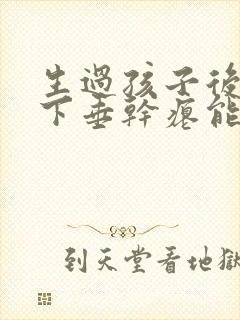 生過孩子後
下垂幹癟能
到天堂看地獄